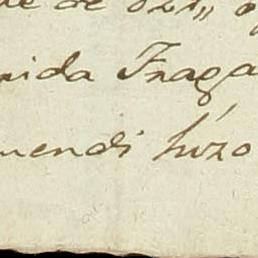 de 821,,
nida Fraga
mendi hizo